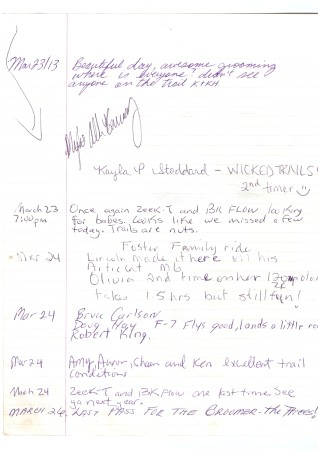 Mar 23/13 Beautiful day, awesome grooming
where is everyone? didn't see
anyone on the trail
Kayla P Stoddard - WICKED TRAILS!
2nd timer
March 23 Once again Zeek-T and BK FLOW looking
7:00pm for babes. Looks like we missed a few
today. Trails are nuts.
Foster Family ride
Mar 24 Lincoln made it here on his
Articat M6
Olivia 2nd time on her 120
Takes 1.5 hrs but still fun!
Mar 24 Bruce Carlson
Doug Hay F-7 Flys good, lands a little
Robert King.
Mar 24 Amy, Aaron, Shawn and Ken excellent trail
conditions
March 24 Zeek-T and BK Flow one last time. See
ya next year.
MARCH 26 LAST PASS FOR THE GROOMER -